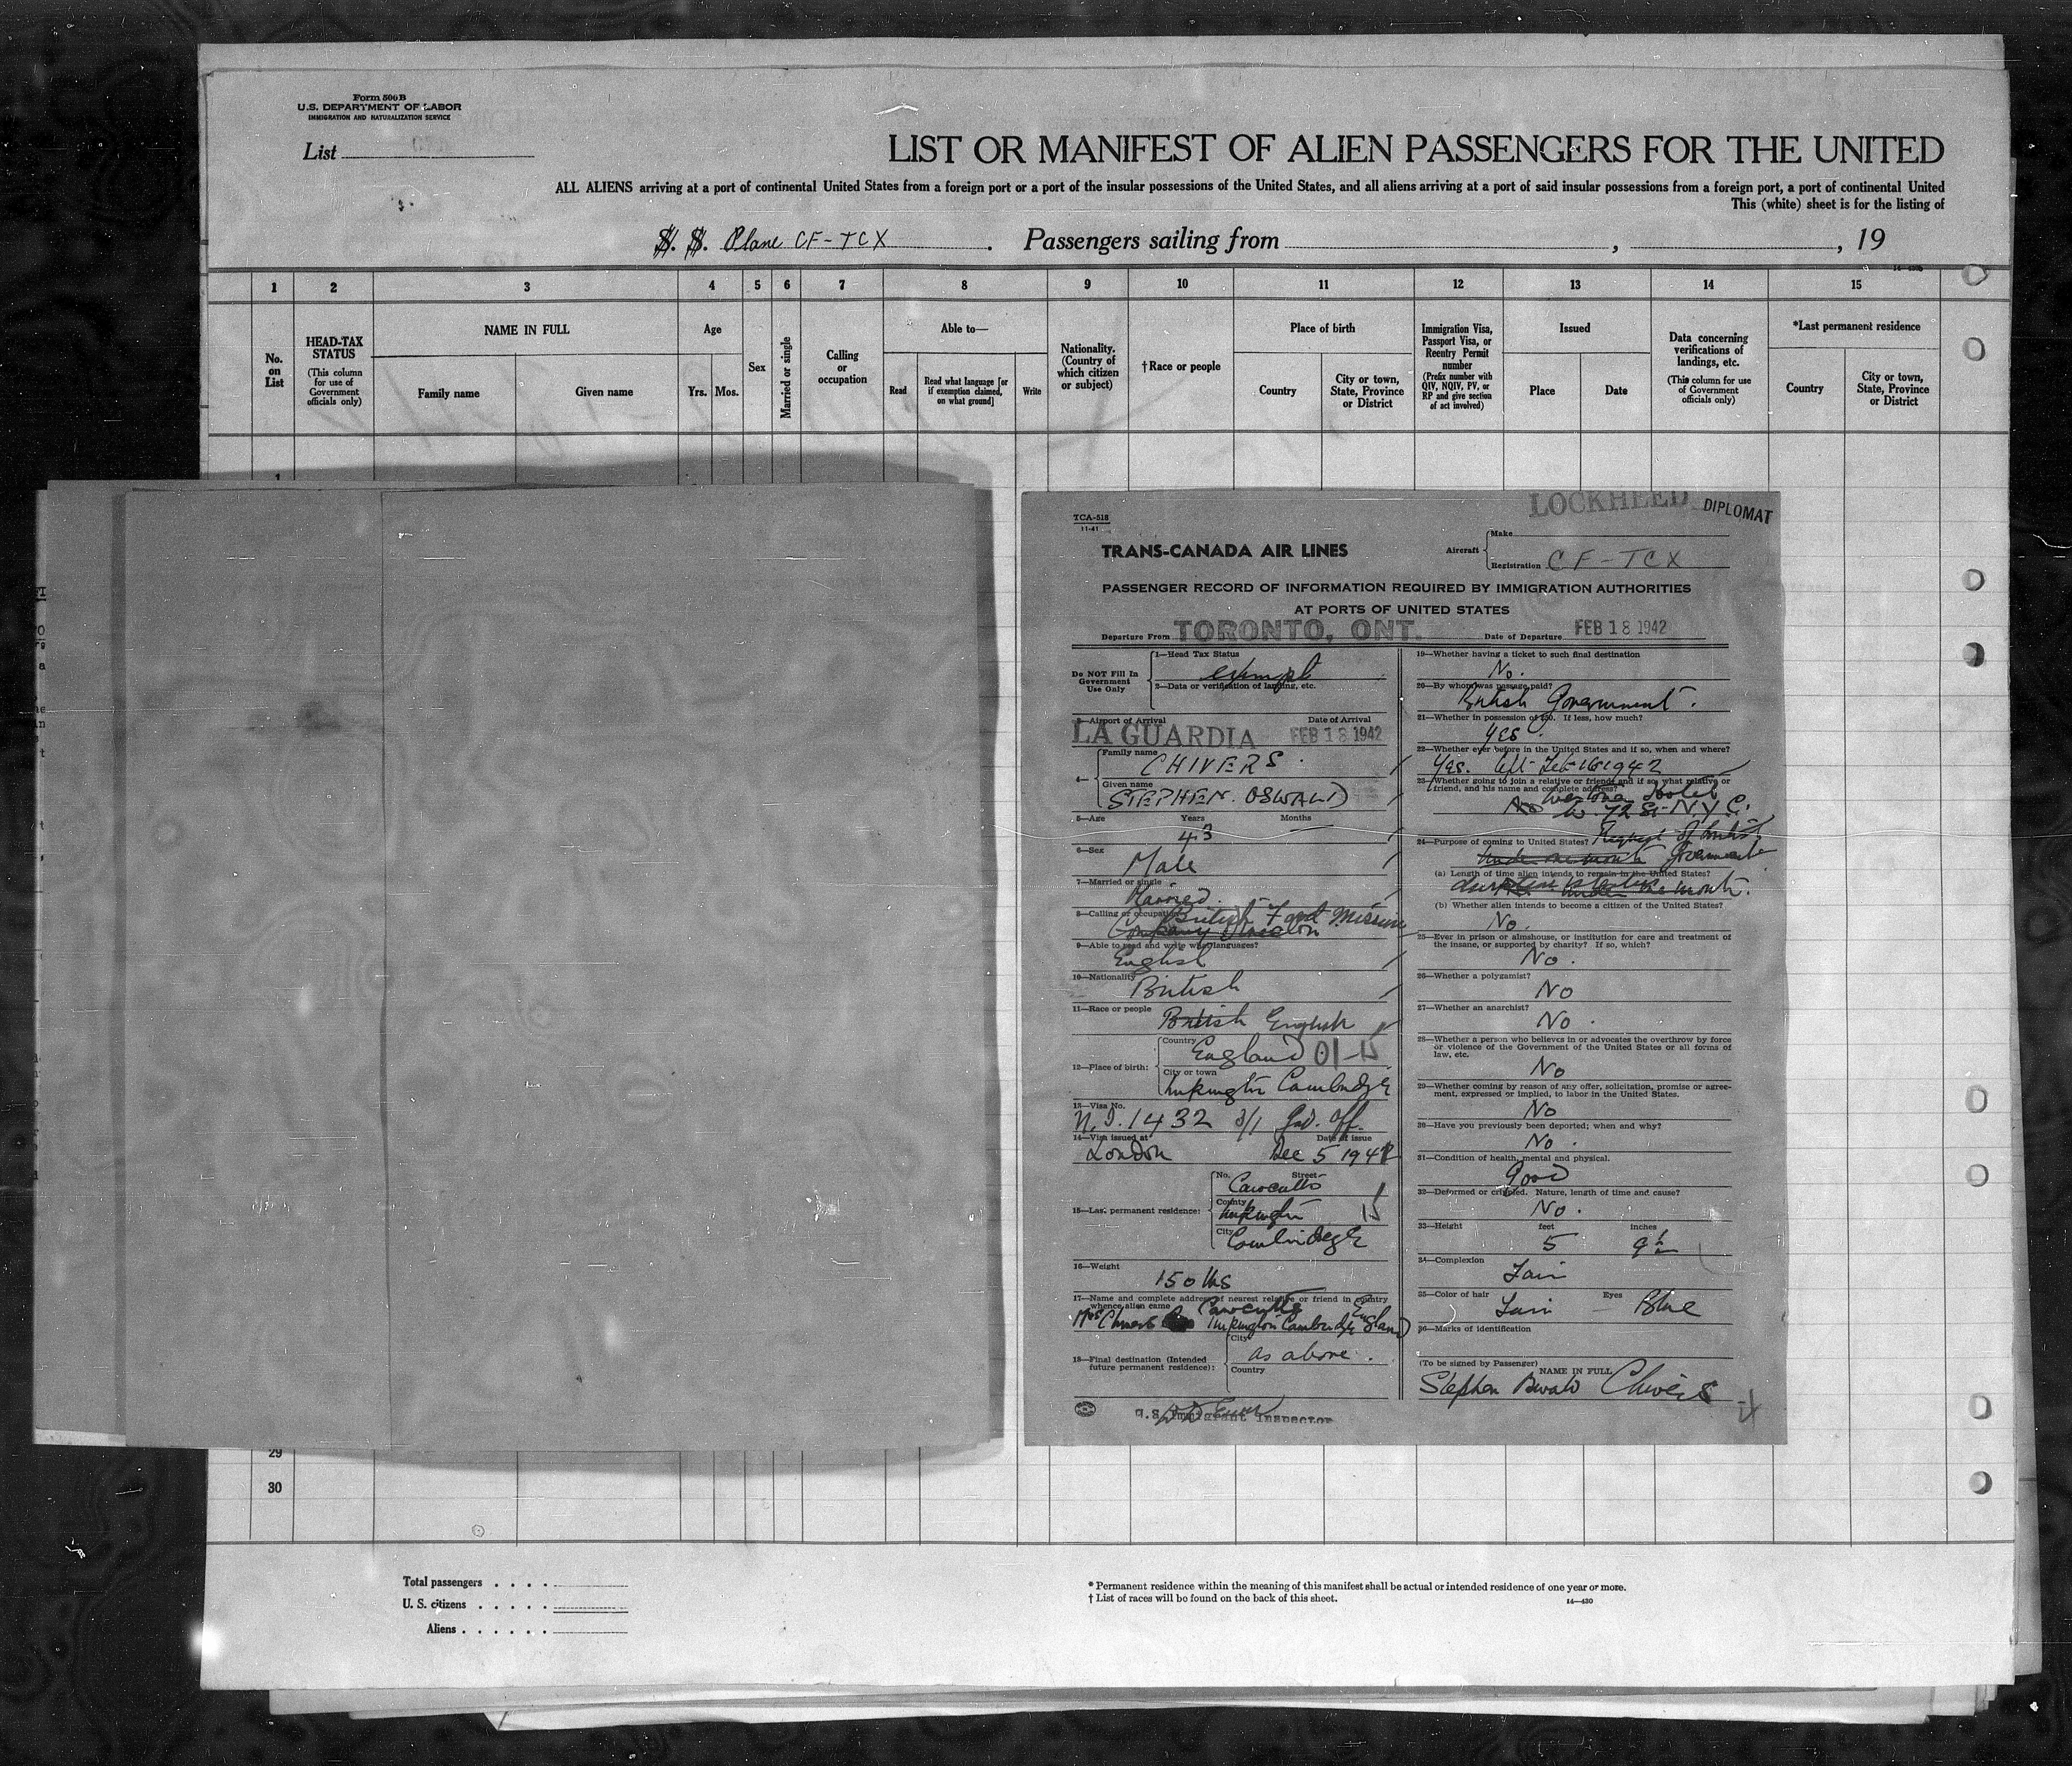 Form 500B
U.S. DEPARTMENT OF LABOR
IMMIGRATION AND NATURALIZATION SERVICE
List
LIST OR MANIFEST OF ALIEN PASSENGERS FOR THE UNITED
ALL ALIENS arriving at a port of continental United States from a foreign port or a port of the insular possessions of the United States, and all aliens arriving at a port of said insular possessions from a foreign port, a port of continental United
This (white) sheet is for the listing of
S. S. Plane CF-TCX. Passengers sailing from , , 19
14—430b
1 2 3 4 5 6 7 8 9 10 11 12 13 14 15
No. on List
HEAD-TAX STATUS
(This column for use of Government officials only)
NAME IN FULL
Family name
Given name
Age
Yrs. Mos.
Sex
Married or single
Calling or occupation
Able to—
Read
Read what language [or if exemption claimed, on what ground]
Write
Nationality. (Country of which citizen or subject)
†Race or people
Place of birth
Country
City or town, State, Province or District
Immigration Visa, Passport Visa, or Reentry Permit number
(Prefix number with QIV, NQIV, PV, or RP and give section of act involved)
Issued
Place
Date
Data concerning verifications of landings, etc.
(This column for use of Government officials only)
*Last permanent residence
Country
City or town, State, Province or District
1
LOCKHEED
DIPLOMAT
TCA-518
11-41
TRANS-CANADA AIR LINES
Aircraft
Make
Registration CF-TCX
PASSENGER RECORD OF INFORMATION REQUIRED BY IMMIGRATION AUTHORITIES
AT PORTS OF UNITED STATES
Departure From TORONTO, ONT. Date of Departure FEB 18 1942
Do NOT Fill In Government Use Only
1—Head Tax Status
exempt
2—Data or verification of landing, etc.
3—Airport of Arrival Date of Arrival
LA GUARDIA FEB 18 1942
4—
Family name
CHIVERS
Given name
STEPHEN. OSWALD
5—Age Years Months
43 —
6—Sex
Male
7—Married or single
Married.
8—Calling or occupation
British Food Mission
Company Director
9—Able to read and write what languages?
English
10—Nationality
British
11—Race or people
British English
12—Place of birth:
Country
England 01-15
City or town
Impington Cambridge
13—Visa No.
N.I. 1432 3/1 Gov. Off.
14—Visa issued at Date of issue
London Dec 5 1941
15—Las. permanent residence:
No. Street
County
Impington 15
City
Cambridge
16—Weight
150 lbs
17—Name and complete address of nearest relative or friend in country
whence alien came
Mrs Chivers Impington Cambridge England
18—Final destination (Intended
future permanent residence):
City
as above.
Country
U.S. Immigrant Inspector
19—Whether having a ticket to such final destination
No.
20—By whom was passage paid?
British Government.
21—Whether in possession of $50. If less, how much?
Yes.
22—Whether ever before in the United States and if so, when and where?
Yes. left Feb 16 1942
23—Whether going to join a relative or friend; and if so, what relative or
friend, and his name and complete address?
No Hotel
W. 72 St. N.Y.C.
24—Purpose of coming to United States? Request of British
Government
(a) Length of time alien intends to remain in the United States?
month.
(b) Whether alien intends to become a citizen of the United States?
No.
25—Ever in prison or almshouse, or institution for care and treatment of
the insane, or supported by charity? If so, which?
No.
26—Whether a polygamist?
No
27—Whether an anarchist?
No.
28—Whether a person who believes in or advocates the overthrow by force
or violence of the Government of the United States or all forms of
law, etc.
No
29—Whether coming by reason of any offer, solicitation, promise or agree-
ment, expressed or implied, to labor in the United States.
No
30—Have you previously been deported; when and why?
No.
31—Condition of health, mental and physical.
Good
32—Deformed or crippled. Nature, length of time and cause?
No.
33—Height feet inches
5 9½
34—Complexion
Fair
35—Color of hair Eyes
Fair — Blue
36—Marks of identification
(To be signed by Passenger)
NAME IN FULL
Stephen Oswald Chivers
29
30
Total passengers . . . .
U. S. citizens . . . . .
Aliens . . . . . .
* Permanent residence within the meaning of this manifest shall be actual or intended residence of one year or more.
† List of races will be found on the back of this sheet.
14—430